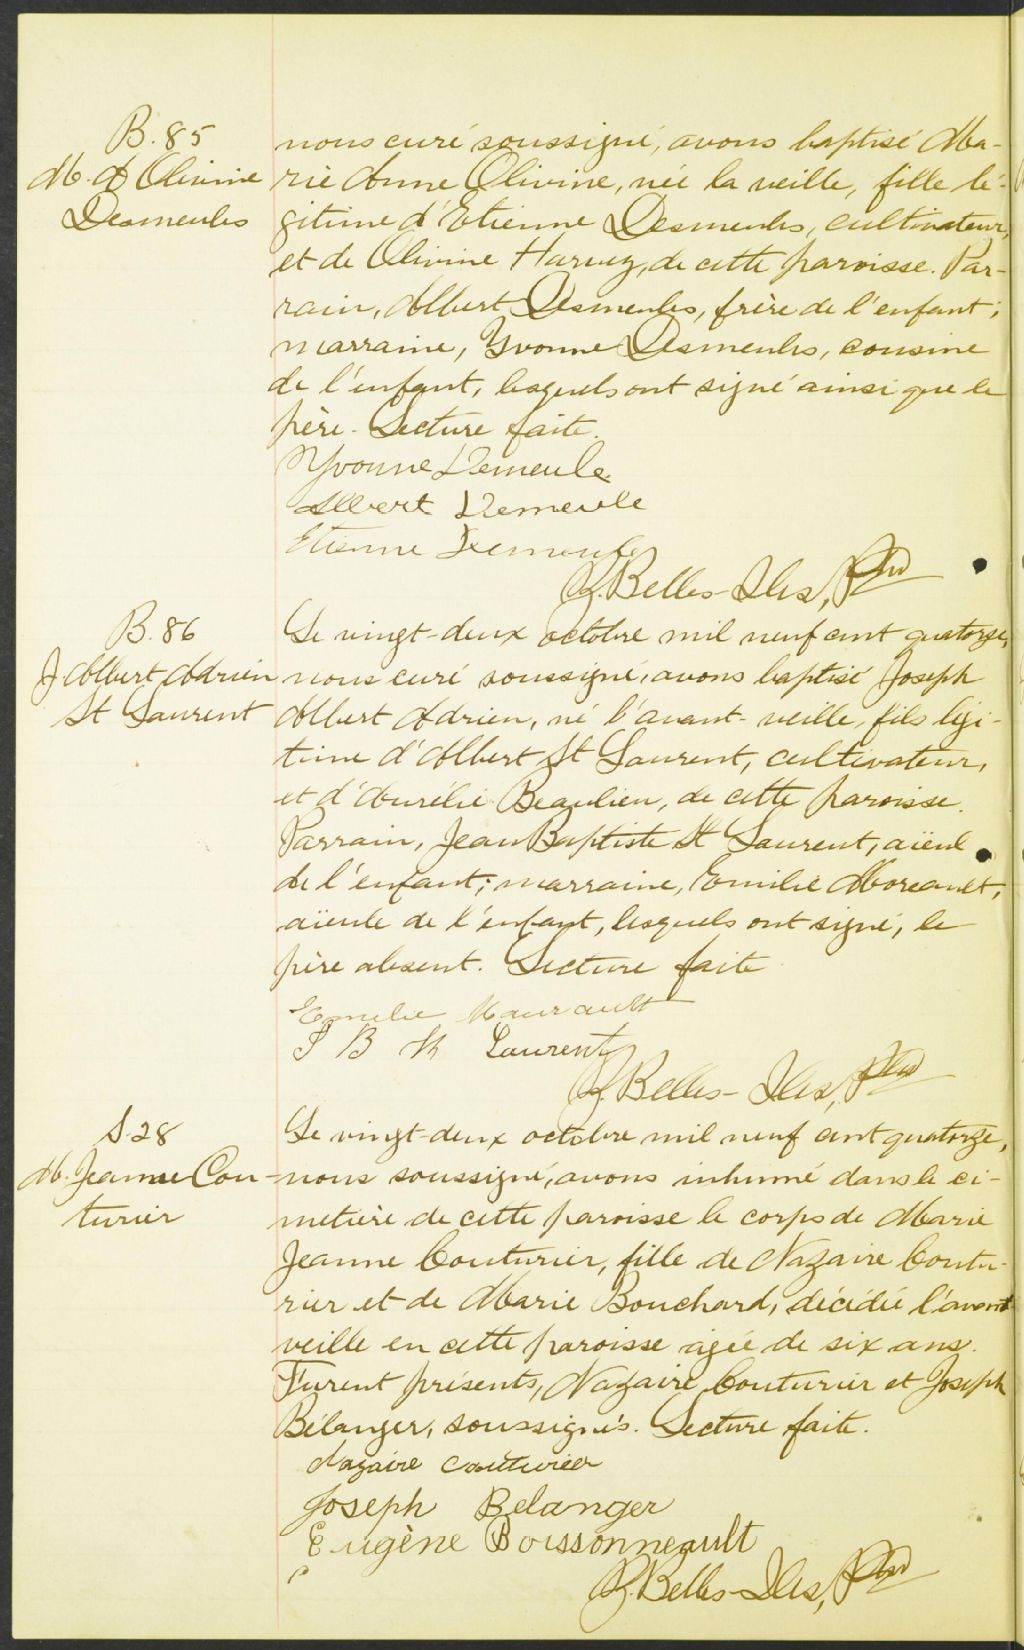 B. 85
M. A Olivine
Desmeules
nous curé soussigné, avons baptisé Ma-
rie Anne Olivine, née la veille, fille lé-
gitime d'Etienne Desmeules, cultivateur,
et de Olivine Harvey, de cette paroisse. Par-
rain, Albert Desmeules, frère de l'enfant;
marraine, Yvonne Desmeules, cousine
de l'enfant, lesquels ont signé ainsi que le
père. Lecture faite.
Yvonne Demeule
Albert Demeule
Etienne Demeule
Belles-Iles, Ptre
B. 86
J Albert Adrien
St Laurent
Le vingt-deux octobre mil neuf cent quatorze,
nous curé soussigné, avons baptisé Joseph
Albert Adrien, né l'avant-veille, fils légi-
time d'Albert St Laurent, cultivateur,
et d'Aurélie Beaulieu, de cette paroisse.
Parrain, Jean Baptiste St Laurent, aïeul
de l'enfant; marraine, Emilie Moreault,
aïeule de l'enfant, lesquels ont signé, le
père absent. Lecture faite
Emelie Maurault
J B St Laurent
Belles-Iles, Ptre
S. 28
M. Jeanne Cou-
turier
Le vingt-deux octobre mil neuf cent quatorze,
nous soussigné, avons inhumé dans le ci-
metière de cette paroisse le corps de Marie
Jeanne Couturier, fille de Nazaire Coutu-
rier et de Marie Bouchard, décédée l'avant
veille en cette paroisse agée de six ans.
Furent présents, Nazaire Couturier et Joseph
Bélanger, soussignés. Lecture faite.
Nazaire Couturier
Joseph Belanger
Eugène Boissonneault
Belles-Iles, Ptre